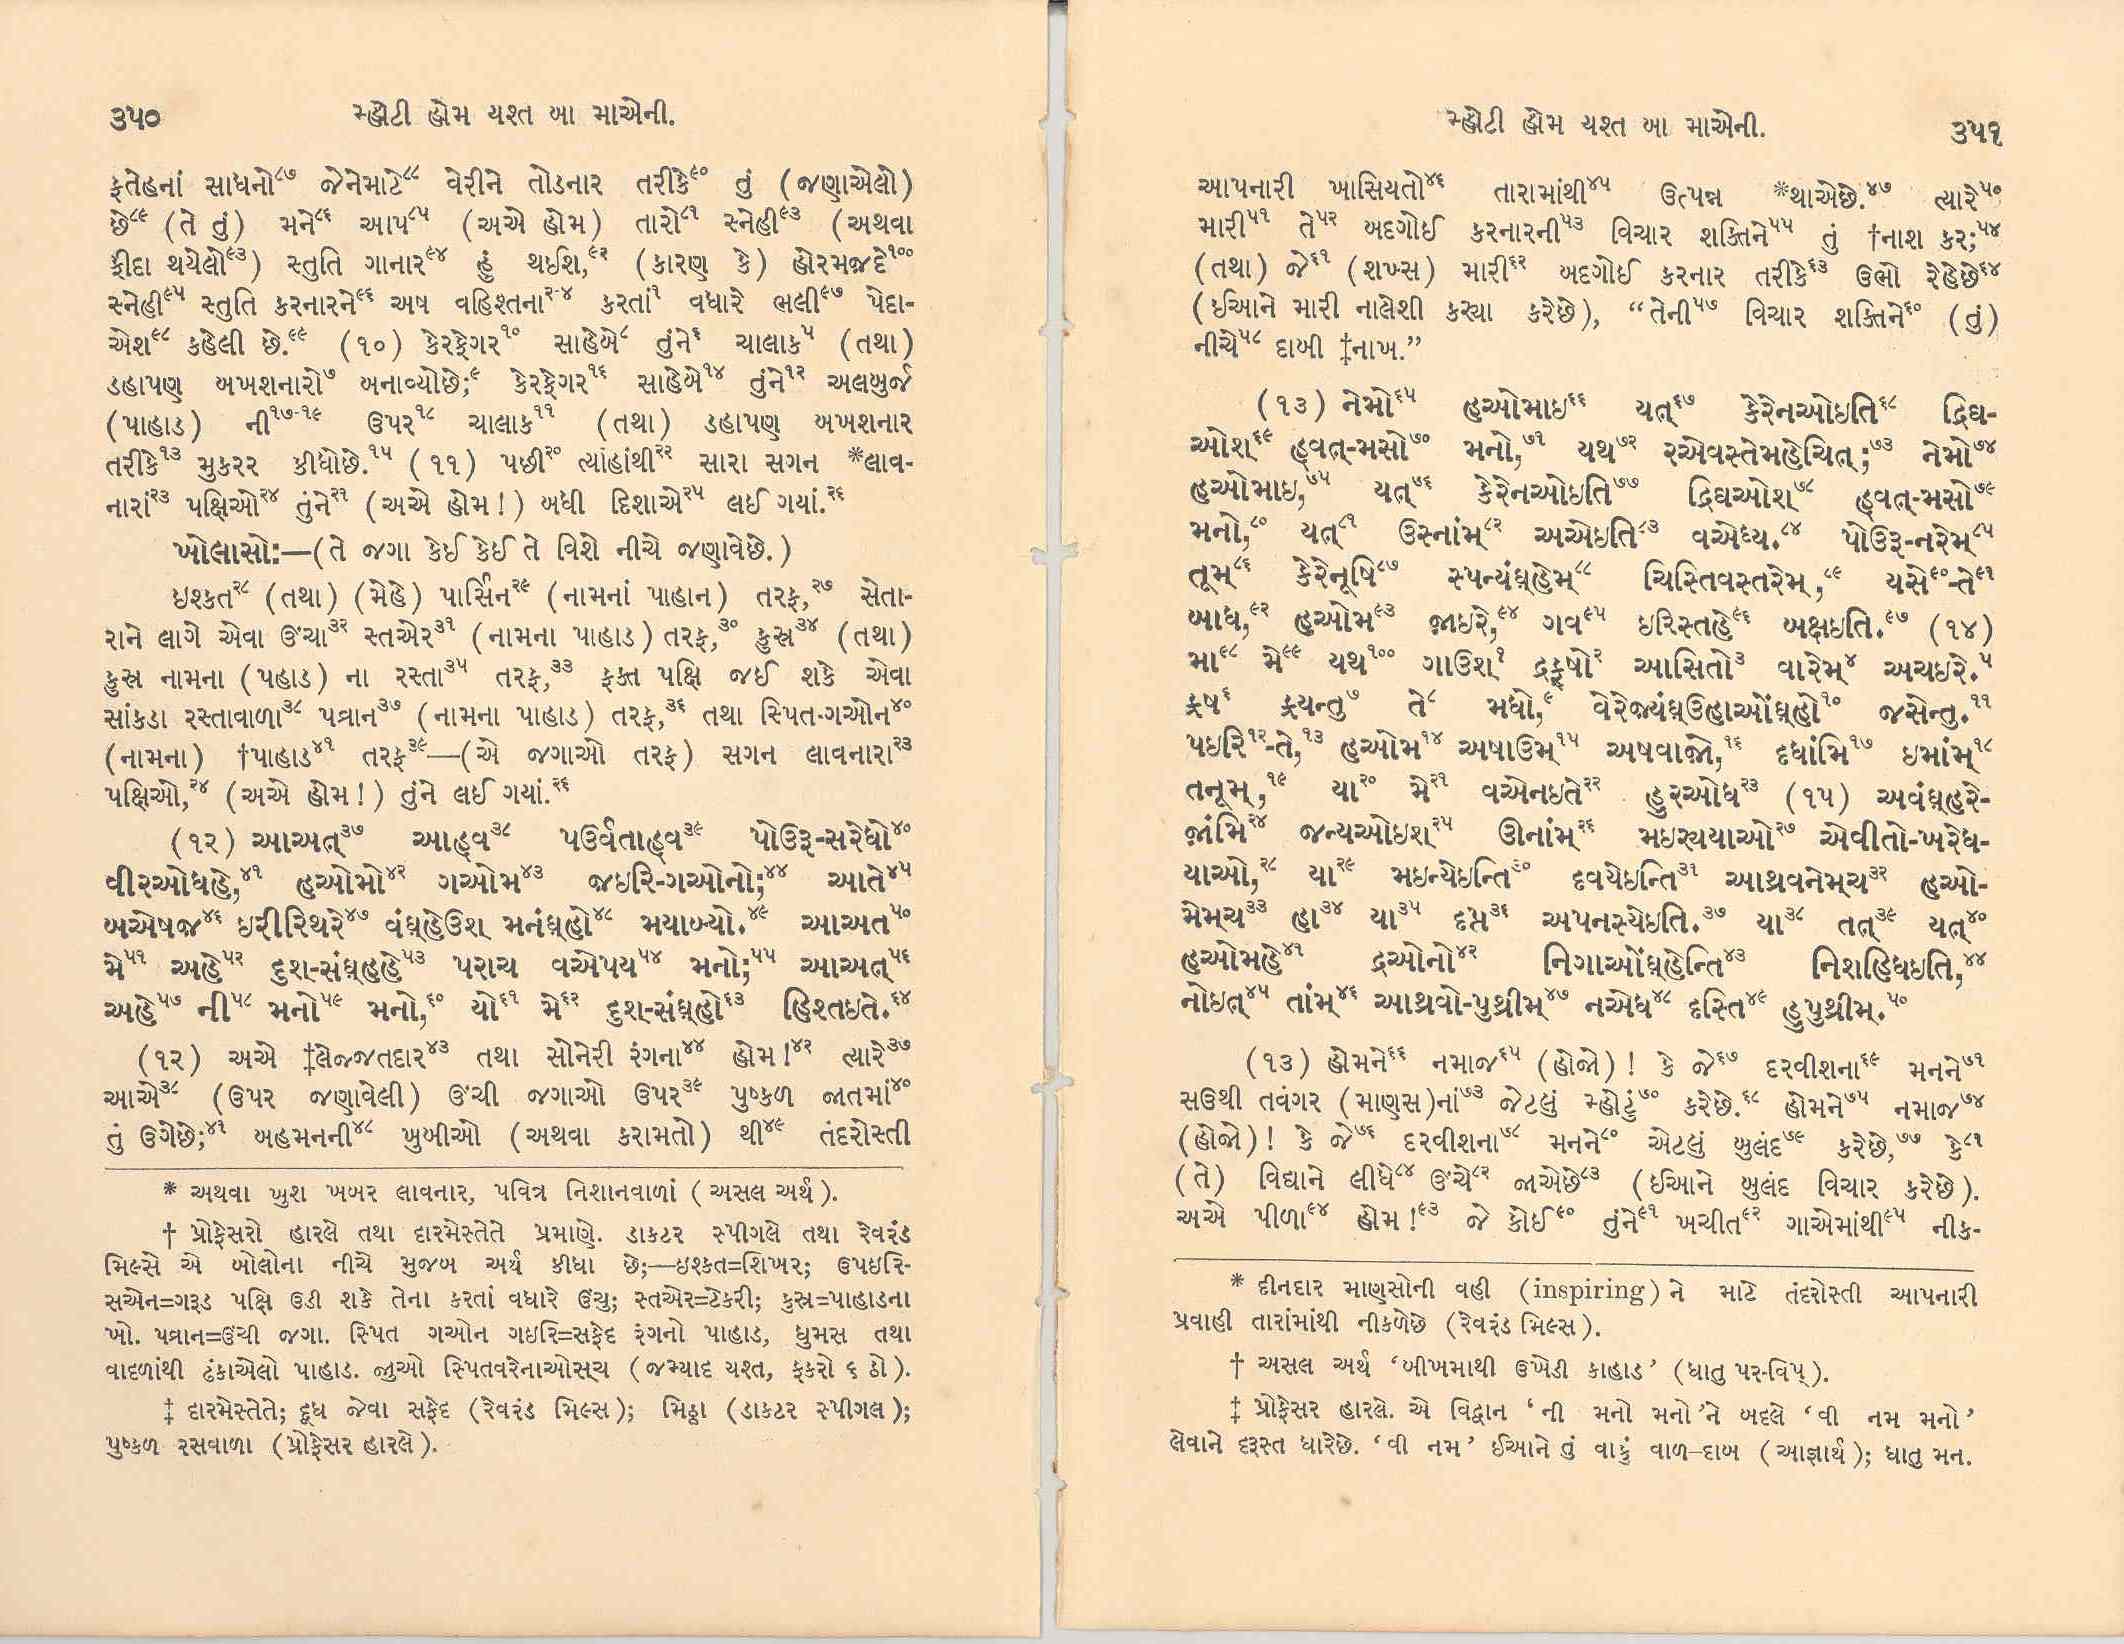 ૩૫૦ મ્હોટી હોમ યશ્ત બા માએની.
ફતેહનાં સાધનો૮૭ જેનેમાટે૮૮ વેરીને તોડનાર તરીકે૯૦ તું (જણાએલો)
છે૮૯ (તે તું) મને૮૬ આપ૮૫ (અએ હોમ) તારો૮૧ સ્નેહી૯૩ (અથવા
ફીદા થયેલો૯૩) સ્તુતિ ગાનાર૯૪ હું થઇશ,૯૨ (કારણ કે) હોરમજદે૧૦૦
સ્નેહી૯૫ સ્તુતિ કરનારને૯૬ અષ વહિશ્તના૨-૪ કરતાં૧ વધારે ભલી૯૭ પેદા-
એશ૯૮ કહેલી છે.૯૯ (૧૦) કેરફેગર૧૦ સાહેબે૮ તુંને૬ ચાલાક૫ (તથા)
ડહાપણ બખશનારો૭ બનાવ્યોછે;૯ કેરફેગર૧૬ સાહેબે૧૪ તુંને૧૨ અલબુર્જ
(પાહાડ) ની૧૭-૧૯ ઉપર૧૮ ચાલાક૧૧ (તથા) ડહાપણ બખશનાર
તરીકે૧૩ મુકરર કીધોછે.૧૫ (૧૧) પછી૨૦ ત્યાંહાંથી૨૨ સારા સગન *લાવ-
નારાં૨૩ પક્ષિઓ૨૪ તુંને૨૧ (અએ હોમ!) બધી દિશાએ૨૫ લઈ ગયાં.૨૬
ખોલાસો:—(તે જગા કેઈ કેઈ તે વિશે નીચે જણાવેછે.)
ઇશ્કત૨૮ (તથા) (મેહે) પાર્સિન૨૯ (નામનાં પાહાન) તરફ,૨૭ સેતા-
રાને લાગે એવા ઊંચા૩૨ સ્તએર૩૧ (નામના પાહાડ) તરફ,૩૦ કુસ્ર૩૪ (તથા)
કુસ્ર નામના (પહાડ) ના રસ્તા૩૫ તરફ,૩૩ ફક્ત પક્ષિ જઈ શકે એવા
સાંકડા રસ્તાવાળા૩૮ પવ્રાન૩૭ (નામના પાહાડ) તરફ,૩૬ તથા સ્પિત-ગઓન૪૦
(નામના) †પાહાડ૪૧ તરફ૩૯—(એ જગાઓ તરફ) સગન લાવનારા૨૩
પક્ષિઓ,૨૪ (અએ હોમ!) તુંને લઈ ગયાં.૨૬
(૧૨) આઅત્૩૭ આહ્વ૩૮ પઉર્વતાહ્વ૩૯ પોઉરૂ-સરેધો૪૦
વીરઓધહે,૪૧ હઓમો૪૨ ગઓમ૪૩ જઇરિ-ગઓનો;૪૪ આતે૪૫
બએષજ૪૬ ઇરીરિથરે૪૭ વંઘ્હેઉશ્ મનંઘ્હો૪૮ મયાબ્યો.૪૯ આઅત૫૦
મે૫૧ અહે૫૨ દુશ-સંઘ્હહે૫૩ પરાચ વએપય૫૪ મનો;૫૫ આઅત્૫૬
અહે૫૭ ની૫૮ મનો૫૯ મનો,૬૦ યો૬૧ મે૬૨ દુશ્-સંઘ્હો૬૩ હિશ્તઇતે.૬૪
(૧૨) અએ ‡લેજ્જતદાર૪૩ તથા સોનેરી રંગના૪૪ હોમ!૪૨ ત્યારે૩૭
આએ૩૮ (ઉપર જણાવેલી) ઊંચી જગાઓ ઉપર૩૯ પુષ્કળ જાતમાં૪૦
તું ઉગેછે;૪૧ બહમનની૪૮ ખુબીઓ (અથવા કરામતો) થી૪૯ તંદરોસ્તી
* અથવા ખુશ ખબર લાવનાર, પવિત્ર નિશાનવાળાં (અસલ અર્થ).
† પ્રોફેસરો હારલે તથા દારમેસ્તેતે પ્રમાણે. ડાકટર સ્પીગલે તથા રેવરંડ
મિલ્સે એ બોલોના નીચે મુજબ અર્થ કીધા છે;—ઇશ્કત=શિખર; ઉપઇરિ-
સએન=ગરૂડ પક્ષિ ઉડી શકે તેના કરતાં વધારે ઉંચુ; સ્તએર=ટેકરી; કુસ્ર=પાહાડના
ખો. પવ્રાન=ઉંચી જગા. સ્પિત ગઓન ગઇરિ=સફેદ રંગનો પાહાડ, ધુમસ તથા
વાદળાંથી ઢંકાએલો પાહાડ. જુઓ સ્પિતવરેનાઓસ્ચ (જમ્યાદ યશ્ત, ફકરો ૬ ઠો).
‡ દારમેસ્તેતે; દૂધ જેવા સફેદ (રેવરંડ મિલ્સ); મિઠ્ઠા (ડાકટર સ્પીગલ);
પુષ્કળ રસવાળા (પ્રોફેસર હારલે).
મ્હોટી હોમ યશ્ત બા માએની. ૩૫૧
આપનારી ખાસિયતો૪૬ તારામાંથી૪૫ ઉત્પન્ન *થાએછે.૪૭ ત્યારે૫૦
મારી૫૧ તે૫૨ બદગોઈ કરનારની૫૩ વિચાર શક્તિને૫૫ તું †નાશ કર;૫૪
(તથા) જે૬૧ (શખ્સ) મારી૬૨ બદગોઈ કરનાર તરીકે૬૩ ઉભો રેહેછે૬૪
(ઈઆને મારી નાલેશી કર્યા કરેછે), “તેની૫૭ વિચાર શક્તિને૬૦ (તું)
નીચે૫૮ દાબી ‡નાખ.”
(૧૩) નેમો૬૫ હઓમાઇ૬૬ યત્૬૭ કેરેનઓઇતિ૬૮ દ્રિઘ-
ઓશ્૬૯ હવત્-મસો૭૦ મનો,૭૧ યથ૭૨ રએવસ્તેમહેચિત્;૭૩ નેમો૭૪
હઓમાઇ,૭૫ યત્૭૬ કેરેનઓઇતિ૭૭ દ્રિઘઓશ્૭૮ હવત્-મસો૭૯
મનો,૮૦ યત્૮૧ ઉસ્નાંમ્૮૨ અએઇતિ૮૩ વએધ્ય.૮૪ પોઉરૂ-નરેમ્૮૫
તૂમ્૮૬ કેરેનૂષિ૮૭ સ્પન્યંઘ્હેમ્૮૮ ચિસ્તિવસ્તરેમ્,૮૯ યસે૯૦-તે૯૧
બાધ,૯૨ હઓમ૯૩ જાઇરે,૯૪ ગવ૯૫ ઇરિસ્તહે૯૬ બક્ષઇતિ.૯૭ (૧૪)
મા૯૮ મે૯૯ યથ૧૦૦ ગાઉશ્૧ દ્રફ્ષો૨ આસિતો૩ વારેમ્૪ અચઇરે.૫
ફ્રષ૬ ફ્રયન્તુ૭ તે૮ મધો,૯ વેરેજ્યંઘ્ઉહાઓંઘ્હો૧૦ જસેન્તુ.૧૧
પઇરિ૧૨-તે,૧૩ હઓમ૧૪ અષાઉમ્૧૫ અષવાજો,૧૬ દધાંમિ૧૭ ઇમાંમ્૧૮
તનૂમ્,૧૯ યા૨૦ મે૨૧ વએનઇતે૨૨ હુરઓધ૨૩ (૧૫) અવંઘ્હરે-
જાંમિ૨૪ જન્યઓઇશ્૨૫ ઊનાંમ્૨૬ મઇર્યયાઓ૨૭ એવીતો-ખરેધ-
યાઓ,૨૮ યા૨૯ મઇન્યેઇન્તિ૩૦ દવયેઇન્તિ૩૧ આથ્રવનેમ્ચ૩૨ હઓ-
મેમ્ચ૩૩ હા૩૪ યા૩૫ દપ્ત૩૬ અપનસ્યેઇતિ.૩૭ યા૩૮ તત્૩૯ યત્૪૦
હઓમહે૪૧ દ્રઓનો૪૨ નિગાઓંઘ્હેન્તિ૪૩ નિશહિધઇતિ,૪૪
નોઇત્૪૫ તાંમ્૪૬ આથ્રવો-પુથ્રીમ્૪૭ નએધ૪૮ દસ્તિ૪૯ હુપુથ્રીમ્.૫૦
(૧૩) હોમને૬૬ નમાજ૬૫ (હોજો)! કે જે૬૭ દરવીશના૬૯ મનને૭૧
સઉથી તવંગર (માણસ)નાં૭૩ જેટલું મ્હોટું૭૦ કરેછે.૬૮ હોમને૭૫ નમાજ૭૪
(હોજો)! કે જે૭૬ દરવીશના૭૮ મનને૮૦ એટલું બુલંદ૭૯ કરેછે,૭૭ કે૮૧
(તે) વિદ્યાને લીધે૮૪ ઊંચે૮૨ જાએછે૮૩ (ઈઆને બુલંદ વિચાર કરેછે).
અએ પીળા૯૪ હોમ!૯૩ જે કોઈ૯૦ તુંને૯૧ ખચીત૯૨ ગાએમાંથી૯૫ નીક-
* દીનદાર માણસોની વહી (inspiring) ને માટે તંદરોસ્તી આપનારી
પ્રવાહી તારાંમાંથી નીકળેછે (રેવરંડ મિલ્સ).
† અસલ અર્થ ‘બીખમાથી ઉખેડી કાહાડ’ (ધાતુ પર-વિપ્).
‡ પ્રોફેસર હારલે. એ વિદ્વાન ‘ની મનો મનો’ને બદલે ‘વી નમ મનો’
લેવાને દરૂસ્ત ધારેછે. ‘વી નમ’ ઈઆને તું વાકું વાળ-દાબ (આજ્ઞાર્થ); ધાતુ મન.